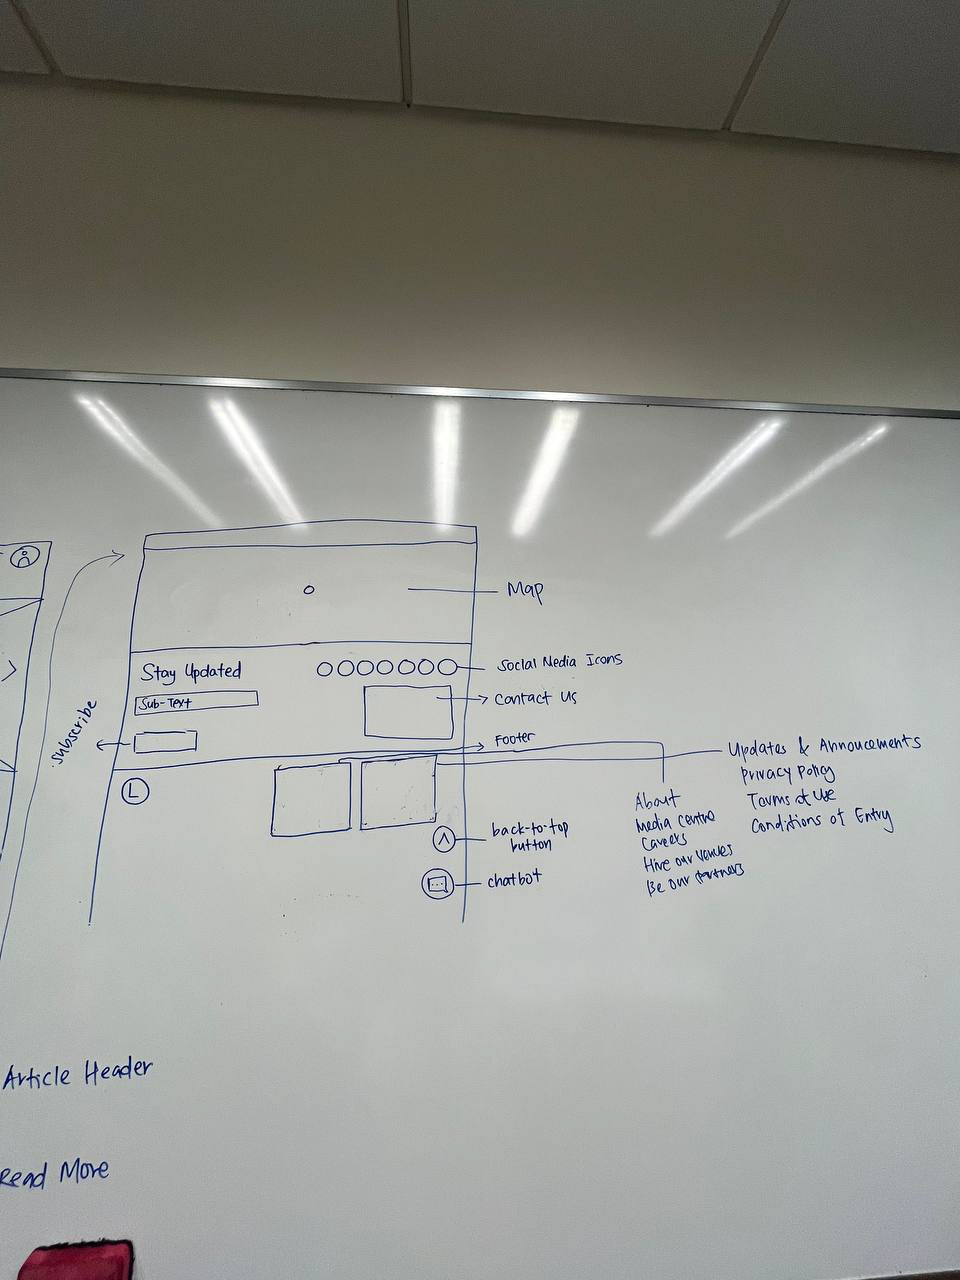 Map
Stay Updated
Social Media Icons
Sub-Text
Contact Us
subscribe
Footer
Updates & Annoucements
Privacy Policy
Terms of Use
Conditions of Entry
About
Media Centre
Careers
Hire our venues
Be our partners
L
back-to-top
button
chatbot
Article Header
Read More